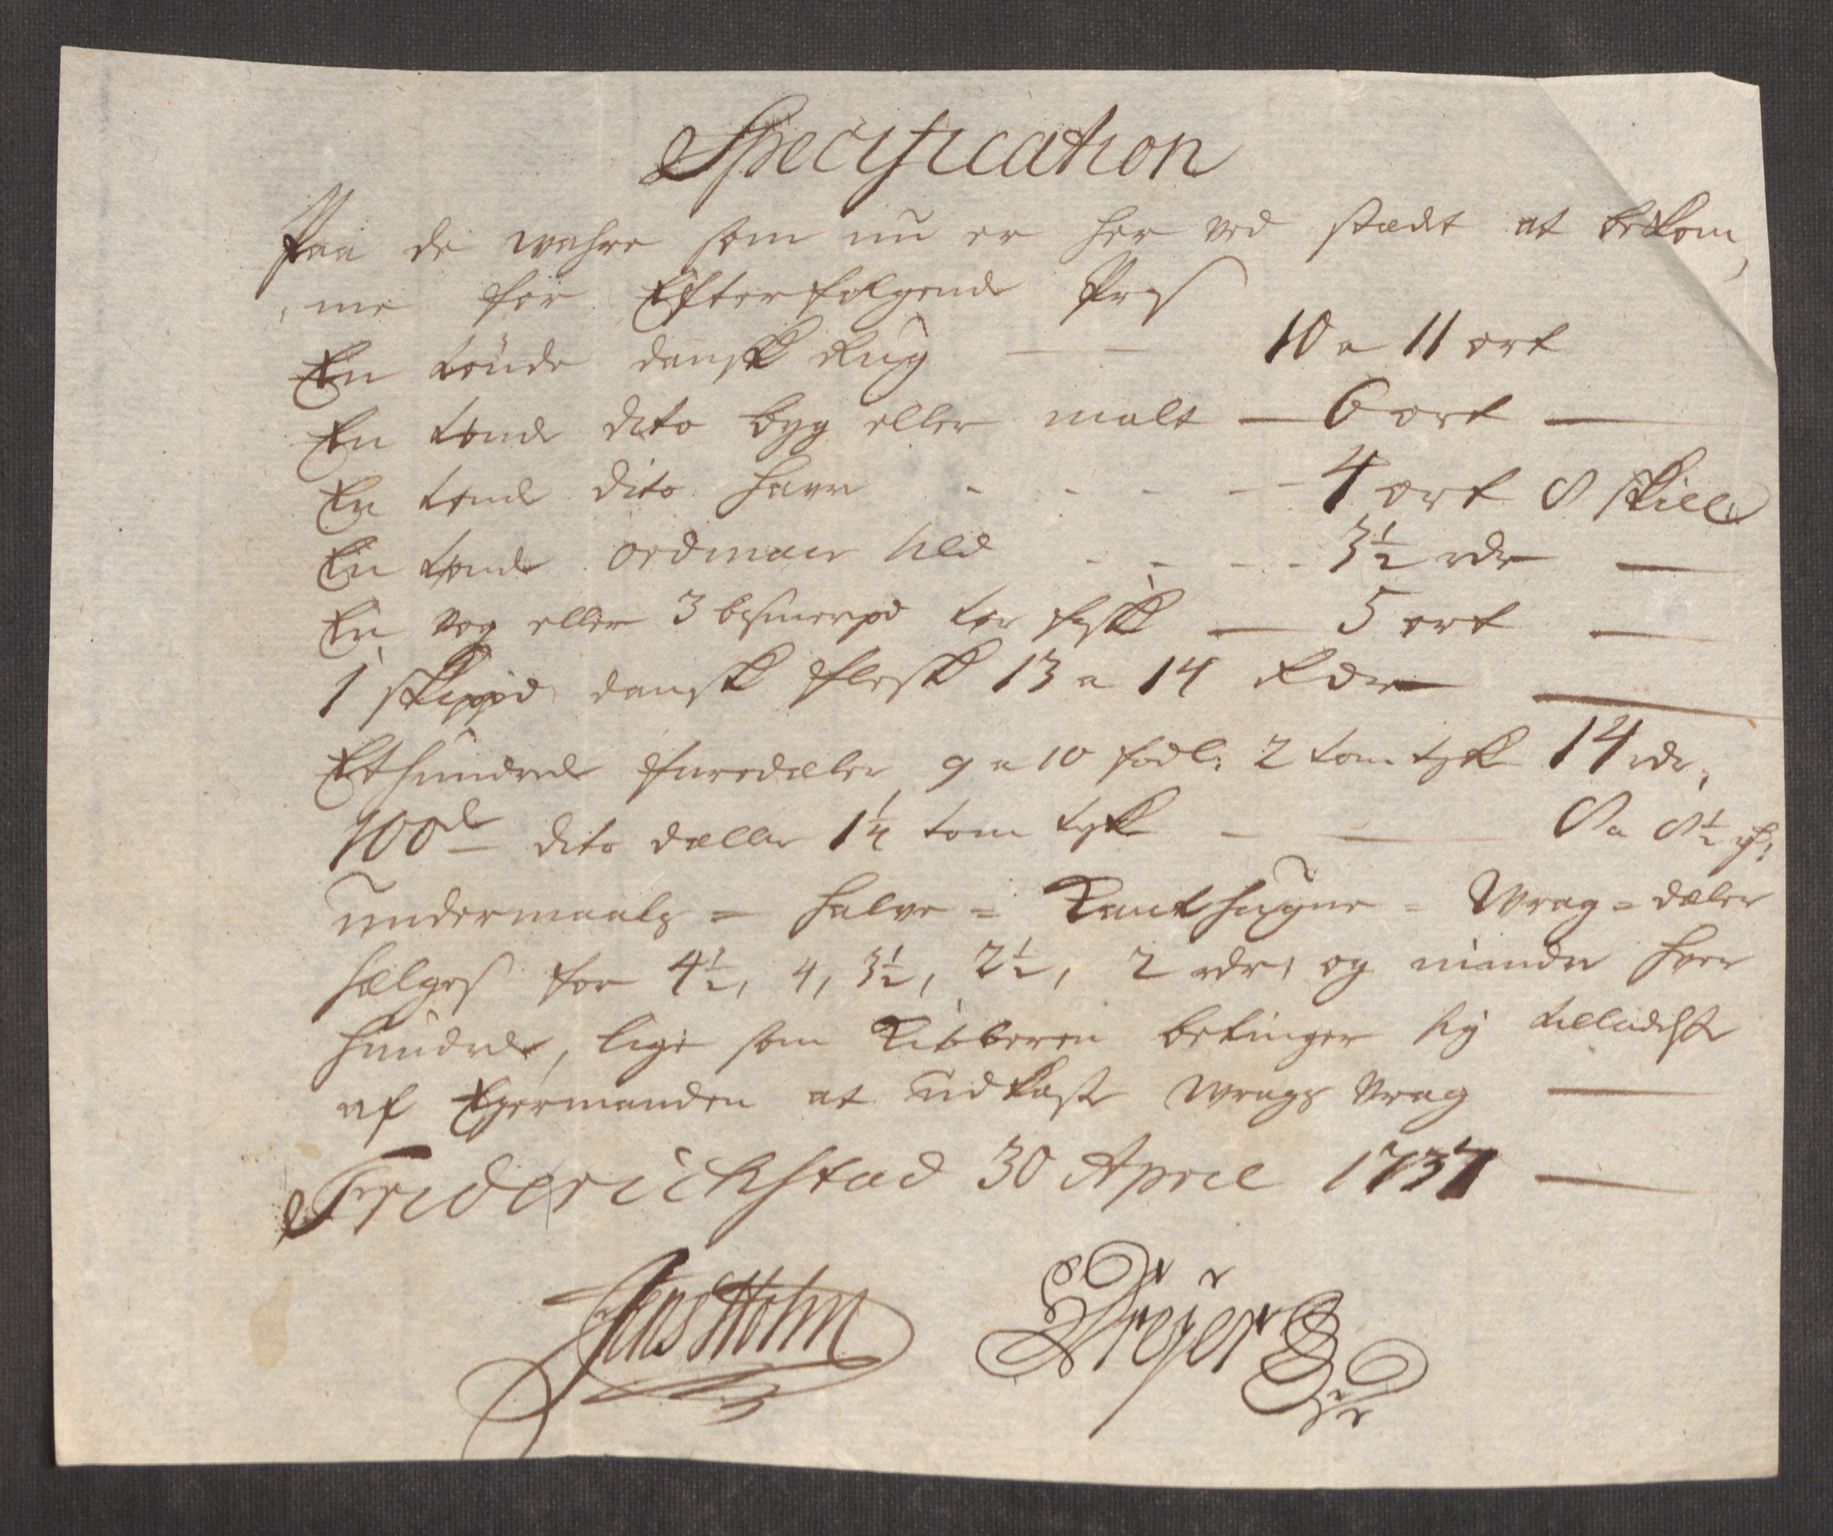 Specification
Paa de wahre som nu er her ved stædet at bekom,
,me for Efterfølgende Pris
En tønde dansk Rug — — 10 a 11 ort
En tønde dito byg eller malt — 6 ort —
En tønde dito havre - - - - - 4 ort 8 skill
En tønde ordinair sild - - - - 3½ rdr —
En vog eller 3 bismerpd tør fisk — 5 ort —
1 skippd dansk flesk 13 a 14 Rdr —
Et hundrede furedæler 9 a 10 fodl: 2 tom tyk 14 rdr,
100de dito dæller 1¼ tom tyk — — 8 a 8½ rd:
undermaals = halve = Kanthugne = Wrag = dæler
sælges for 4½, 4, 3½, 2½, 2 rdr, og mindre hver
hundrede, lige som Kiøberen betinger sig tilladelse
af Eyermanden at udkaste Wrags Vrag —
Friderichstad 30 April 1737 —
Jens Holm Dreÿer